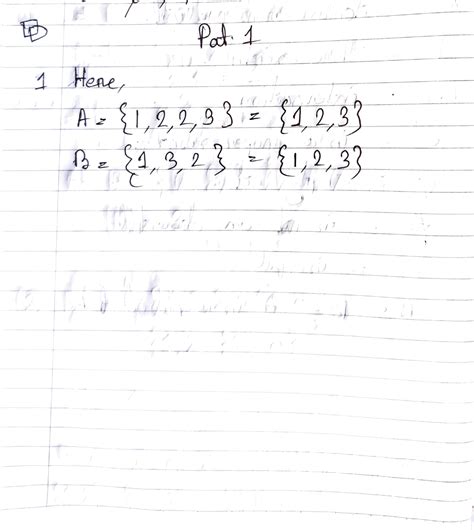 Pat. 1
1 Here,
A = {1, 2, 2, 3} = {1, 2, 3}
B = {1, 3, 2} = {1, 2, 3}